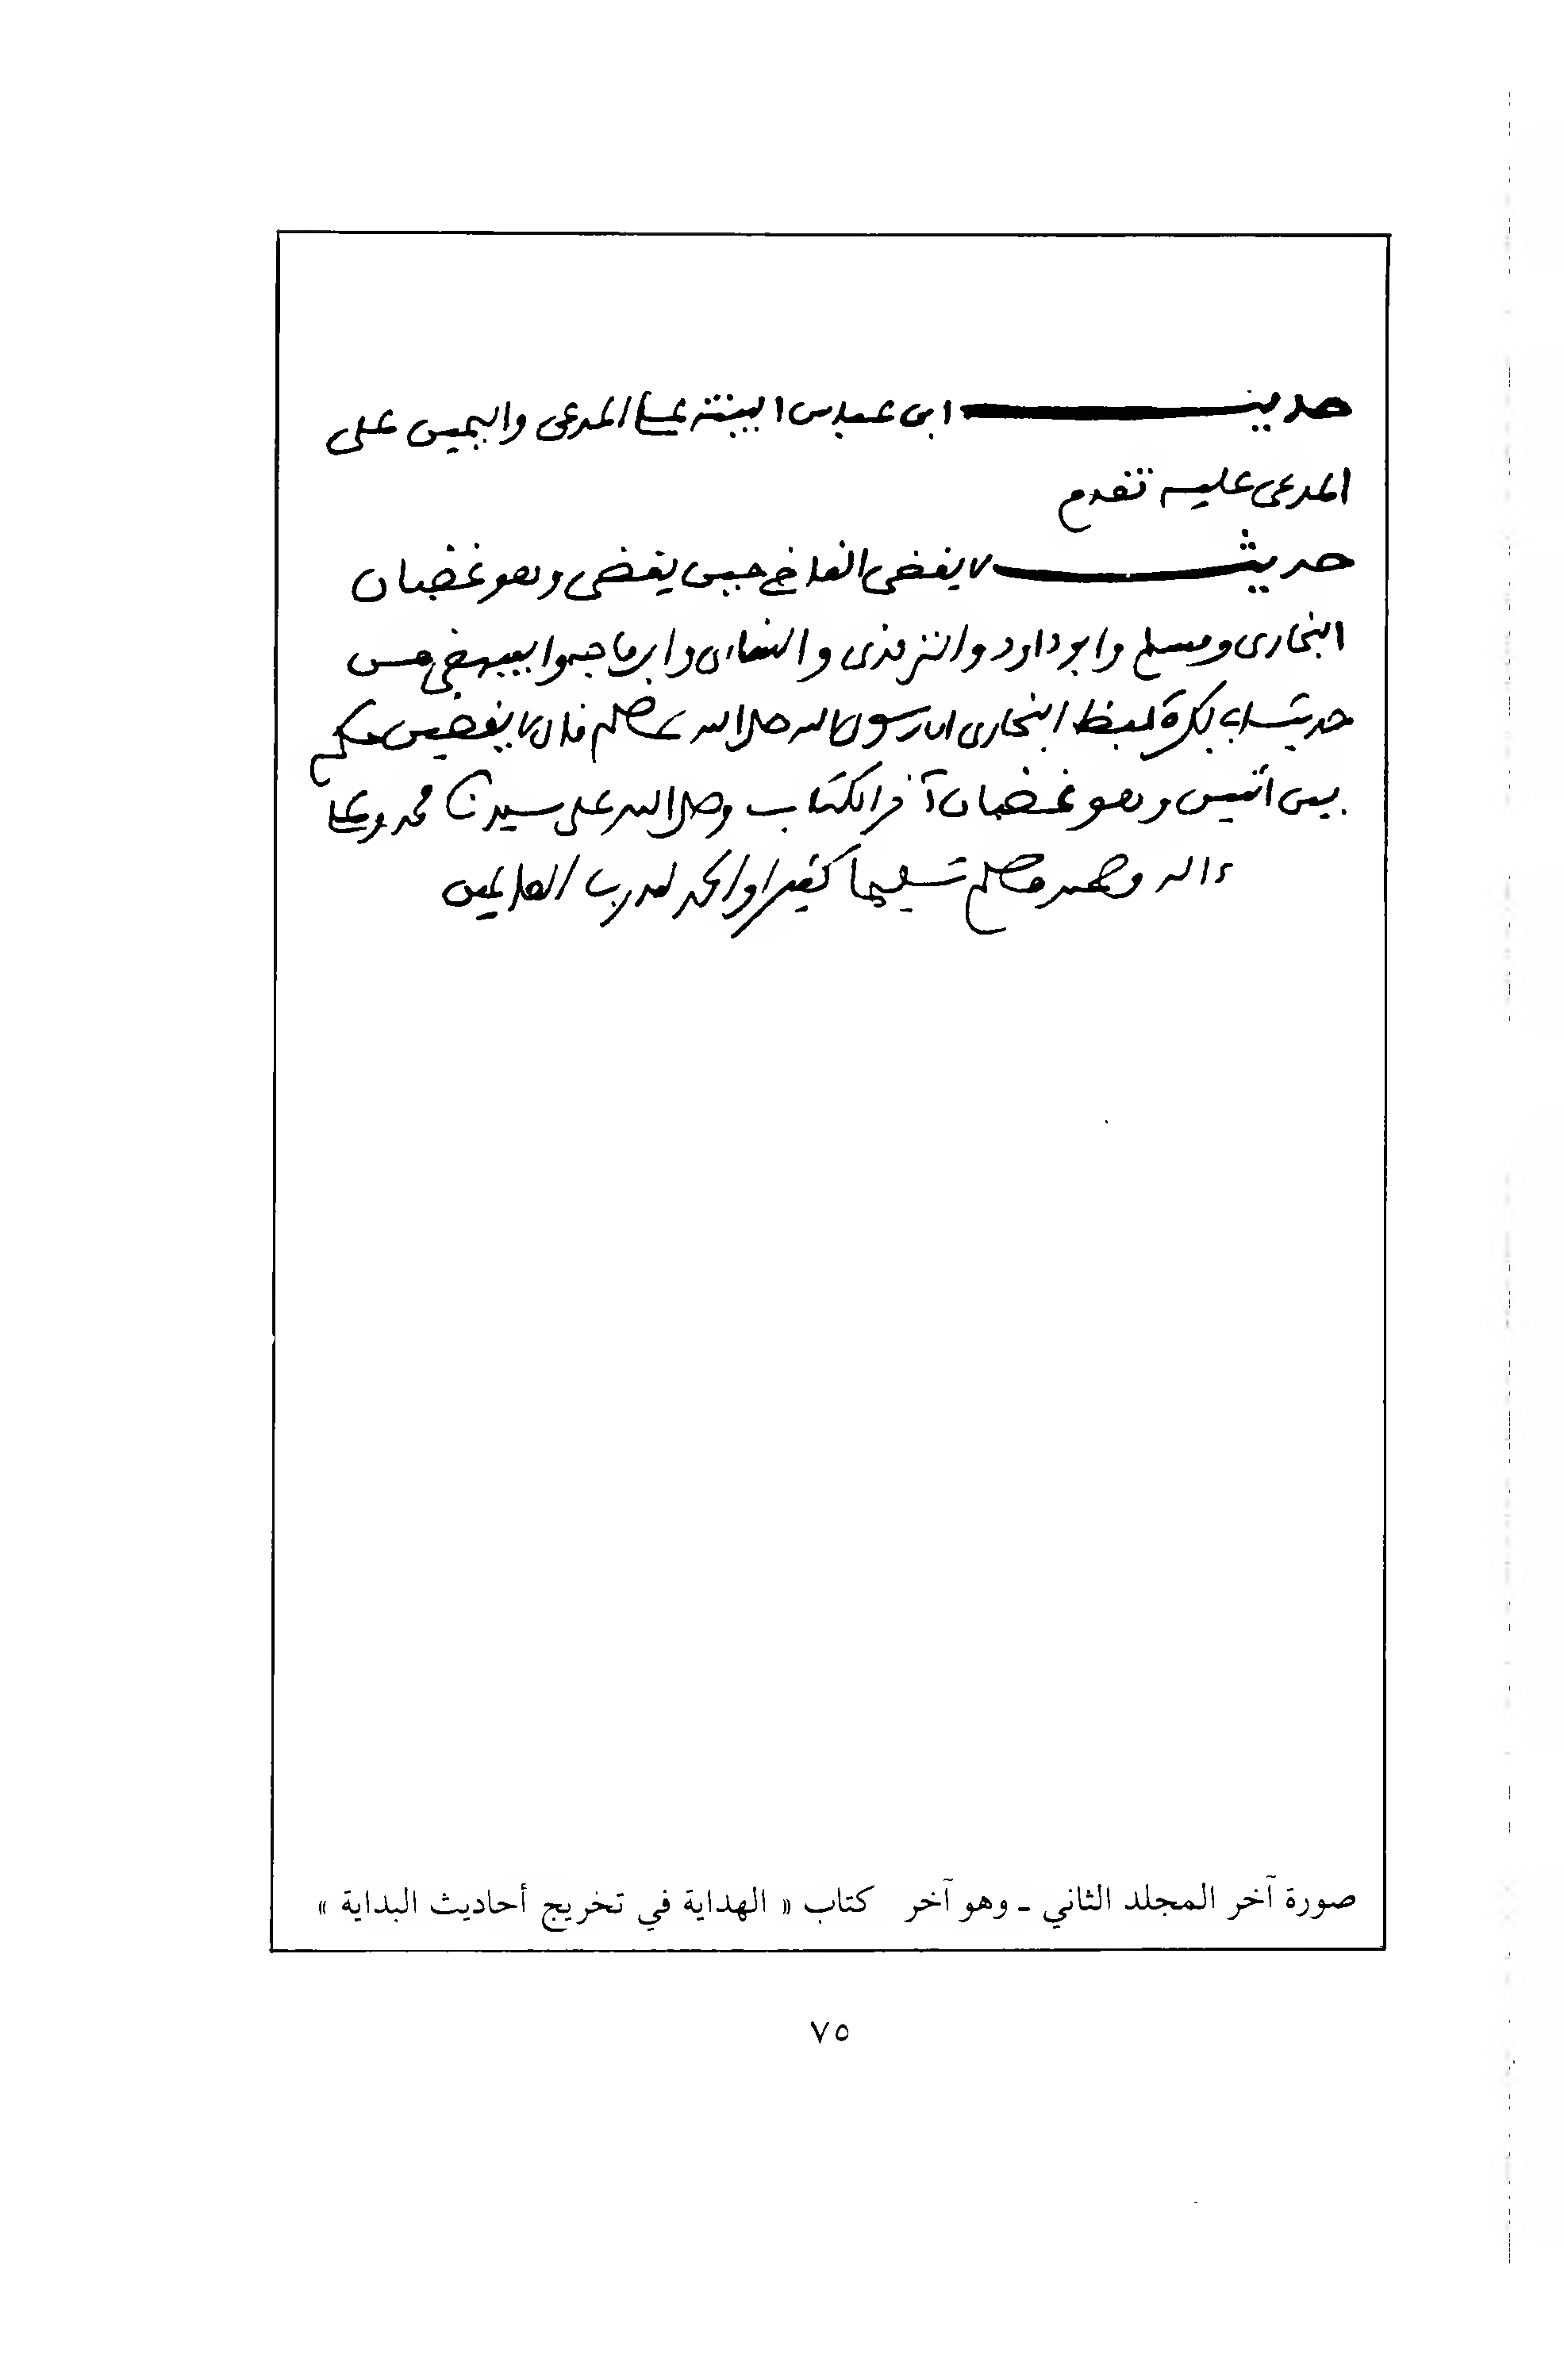 حديث ابن عباس البينة على المدعى واليمين على
المدعى عليه تقدم
حديث لا يقضى القاضي حين يقضى وهو غضبان
البخارى ومسلم وابو داود والترمذى والنسائى وابن ماجه والبيهقي من
حديث ابي بكرة لفظ البخارى ان رسول الله صلى الله عليه وسلم قال لا يقضين حكم
بين اثنين وهو غضبان آخر الكتاب وصلى الله على سيدنا محمد وعلى
ءاله وصحبه وسلم تسليما كثيرا والحمد لله رب العالمين
صورة آخر المجلد الثاني - وهو آخر كتاب « الهداية في تخريج أحاديث البداية »
٧٥